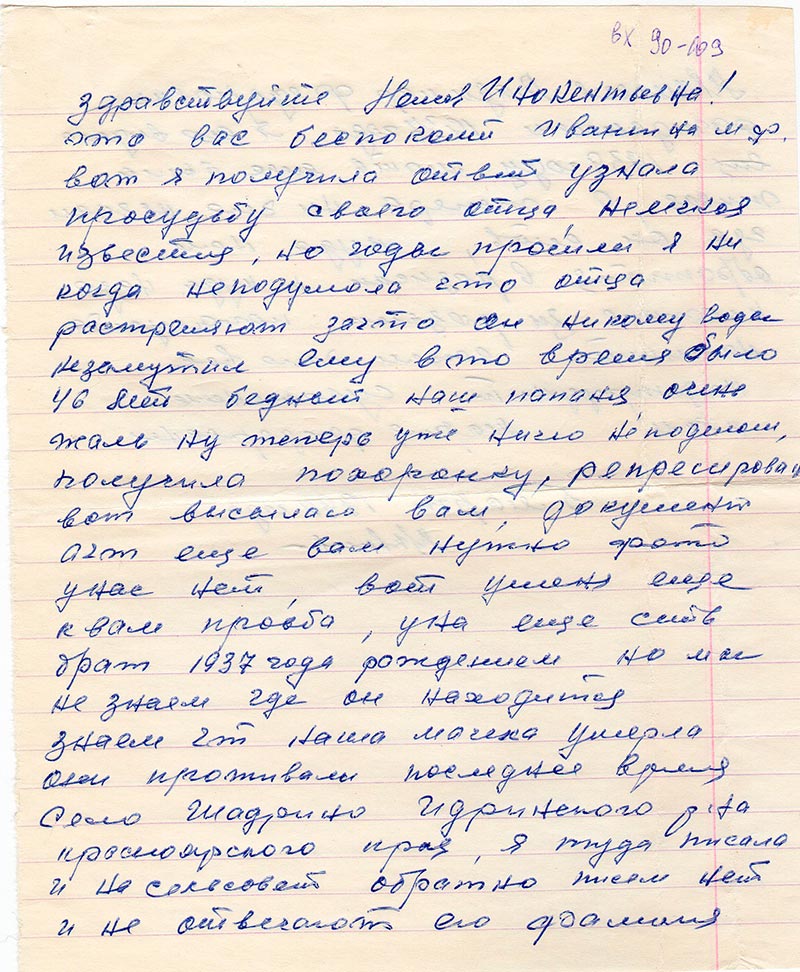 вх 90-109
здравствуйте Инокентьевна!
это вас беспокоит Иванкина м ф.
вот я получила ответ узнала
просудьбу своего отца,
известия, но годы прошли я ни
когда неподумала что отца
растреляют зачто он никому воды
незамутил ему в то время было
46 лет бедный наш папаня очень
жаль ну теперь уже ничо неподелаеш,
получила похоронку, репресирован
вот высылаю вам, документ
еще вам нужно фото
унас нет, вот уменя еще
к вам прозба, унас еще есть
брат 1937 года рождением но мы
не знаем где он находится
знаем что наша мачеха умерла
они проживали последнее время
Село Шадрино Идринского р-на
красноярского края, я туда писала
и на сельсовет обратно писем нет
и не отвечают его фамилия